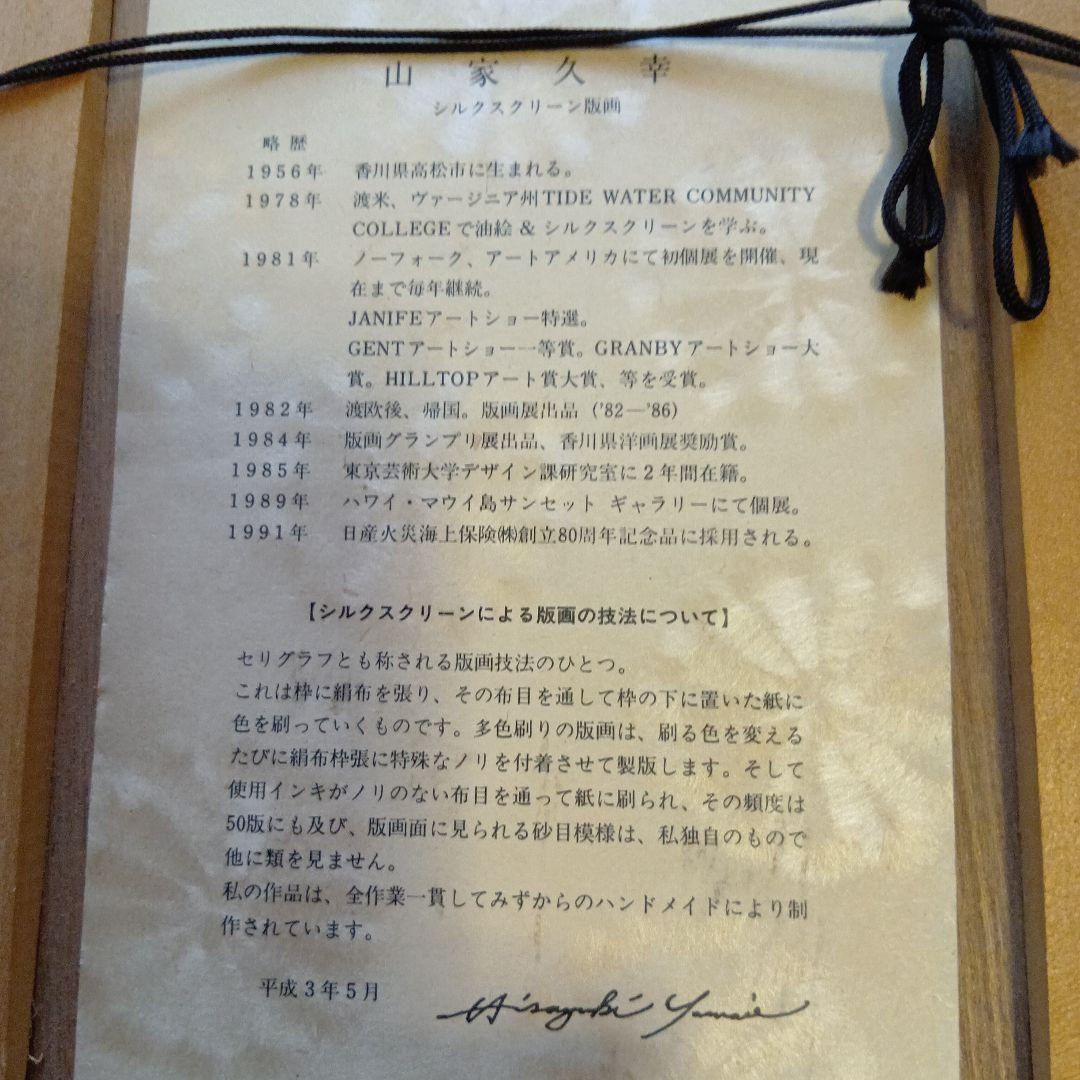 山家久幸
シルクスクリーン版画
略歴
1956年 香川県高松市に生まれる。
1978年 渡米、ヴァージニア州TIDE WATER COMMUNITY
COLLEGEで油絵 & シルクスクリーンを学ぶ。
1981年 ノーフォーク、アートアメリカにて初個展を開催、現
在まで毎年継続。
JANIFEアートショー特選。
GENTアートショー一等賞。GRANBYアートショー大
賞。HILLTOPアート賞大賞、等を受賞。
1982年 渡欧後、帰国。版画展出品 ('82―'86)
1984年 版画グランプリ展出品、香川県洋画展奨励賞。
1985年 東京芸術大学デザイン課研究室に2年間在籍。
1989年 ハワイ・マウイ島サンセット ギャラリーにて個展。
1991年 日産火災海上保険㈱創立80周年記念品に採用される。
【シルクスクリーンによる版画の技法について】
セリグラフとも称される版画技法のひとつ。
これは枠に絹布を張り、その布目を通して枠の下に置いた紙に
色を刷っていくものです。多色刷りの版画は、刷る色を変える
たびに絹布枠張に特殊なノリを付着させて製版します。そして
使用インキがノリのない布目を通って紙に刷られ、その頻度は
50版にも及び、版画面に見られる砂目模様は、私独自のもので
他に類を見ません。
私の作品は、全作業一貫してみずからのハンドメイドにより制
作されています。
平成3年5月
Hisayuki Yamaie